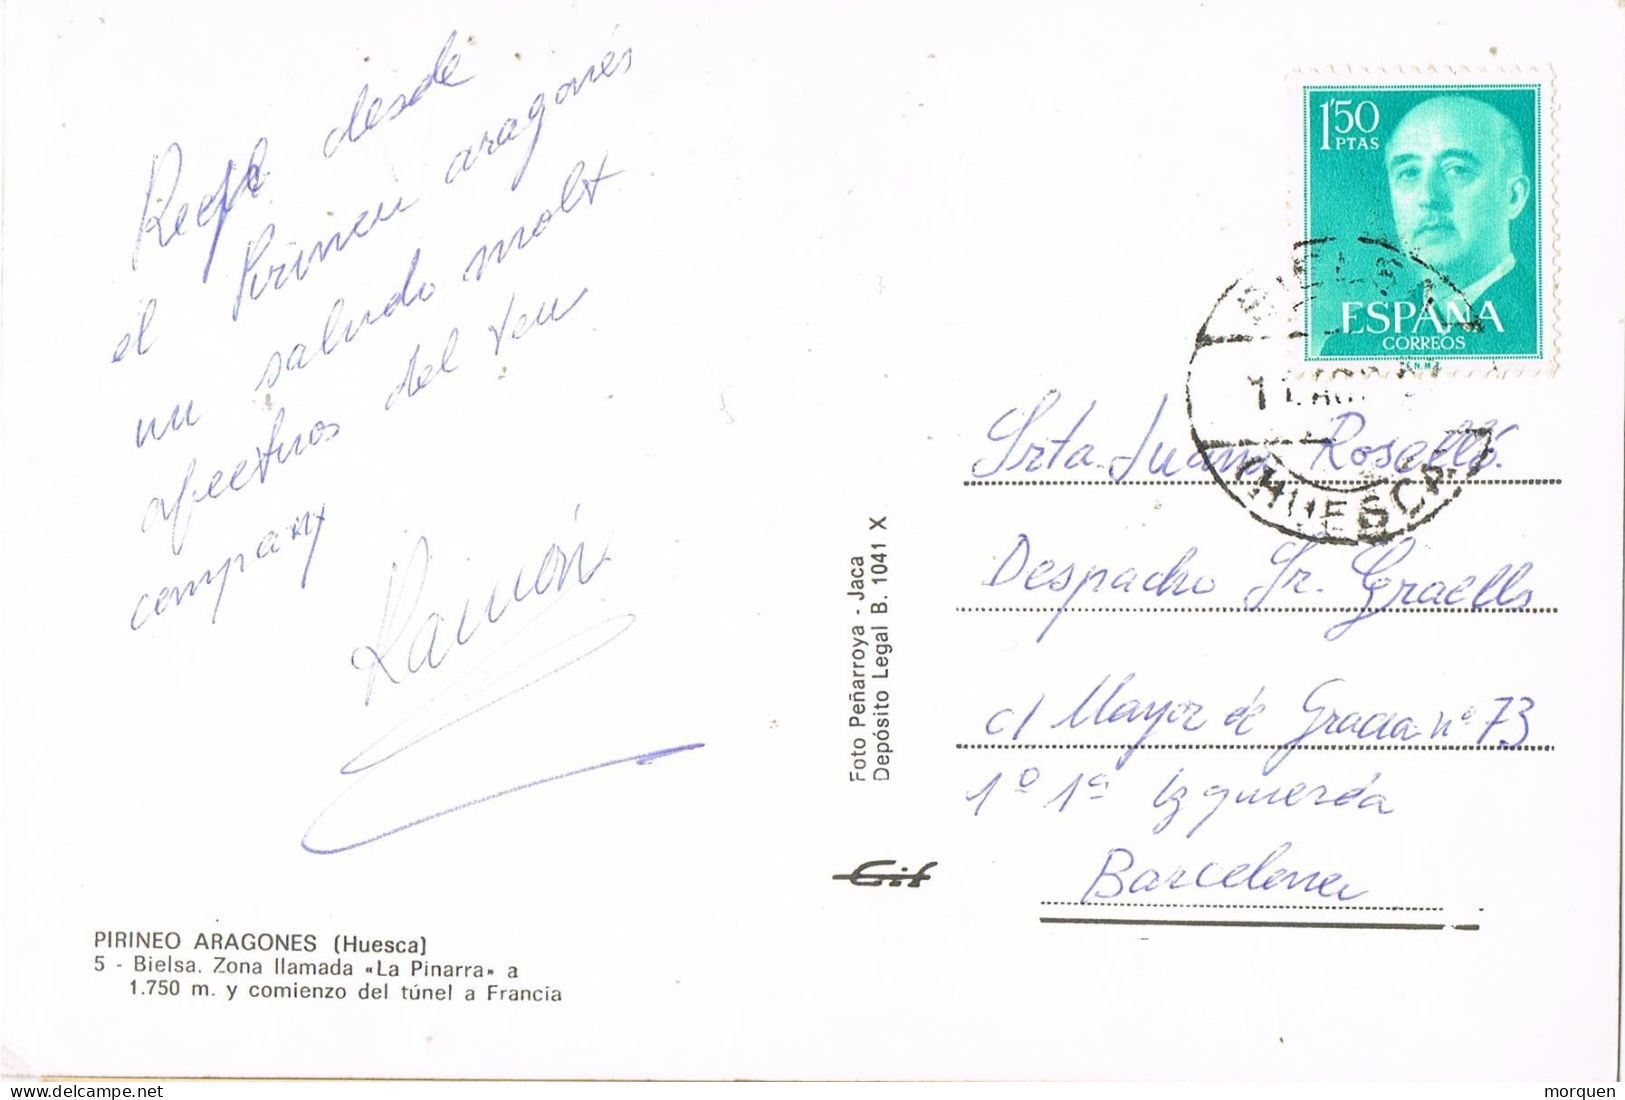 desde
el Pirineu aragonés
un saludo molt
afectuos del teu
company
Ramón
PIRINEO ARAGONES (Huesca)
5 - Bielsa. Zona llamada «La Pinarra» a
1.750 m. y comienzo del túnel a Francia
Foto Peñarroya - Jaca
Depósito Legal B. 1041 X
Gif
1'50
PTAS
ESPAÑA
CORREOS
F.N.M.T.
BIELSA
(HUESCA)
Srta. Juana Roselló.
Despacho Sr. Graells
c/ Mayor de Gracia nº 73
1º 1ª Izquierda
Barcelona
morquen